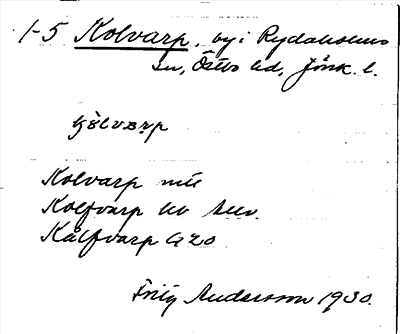 1-5 Kolvarp, by i Rydaholms
sn, Östbo hd, Jönk. l.
Kolvarp
Kolfvarp
Kalfvarp G 20
Fritz Andersson 1930.